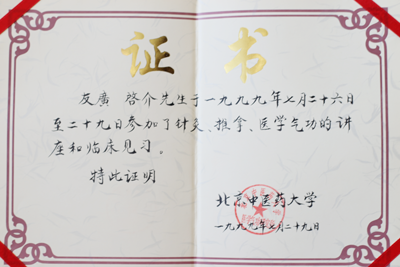 证书
友廣 啓介先生于一九九九年七月二十六日
至二十九日参加了针灸、推拿、医学气功的讲
座和临床见习。
特此证明
北京中医药大学
一九九九年七月二十九日